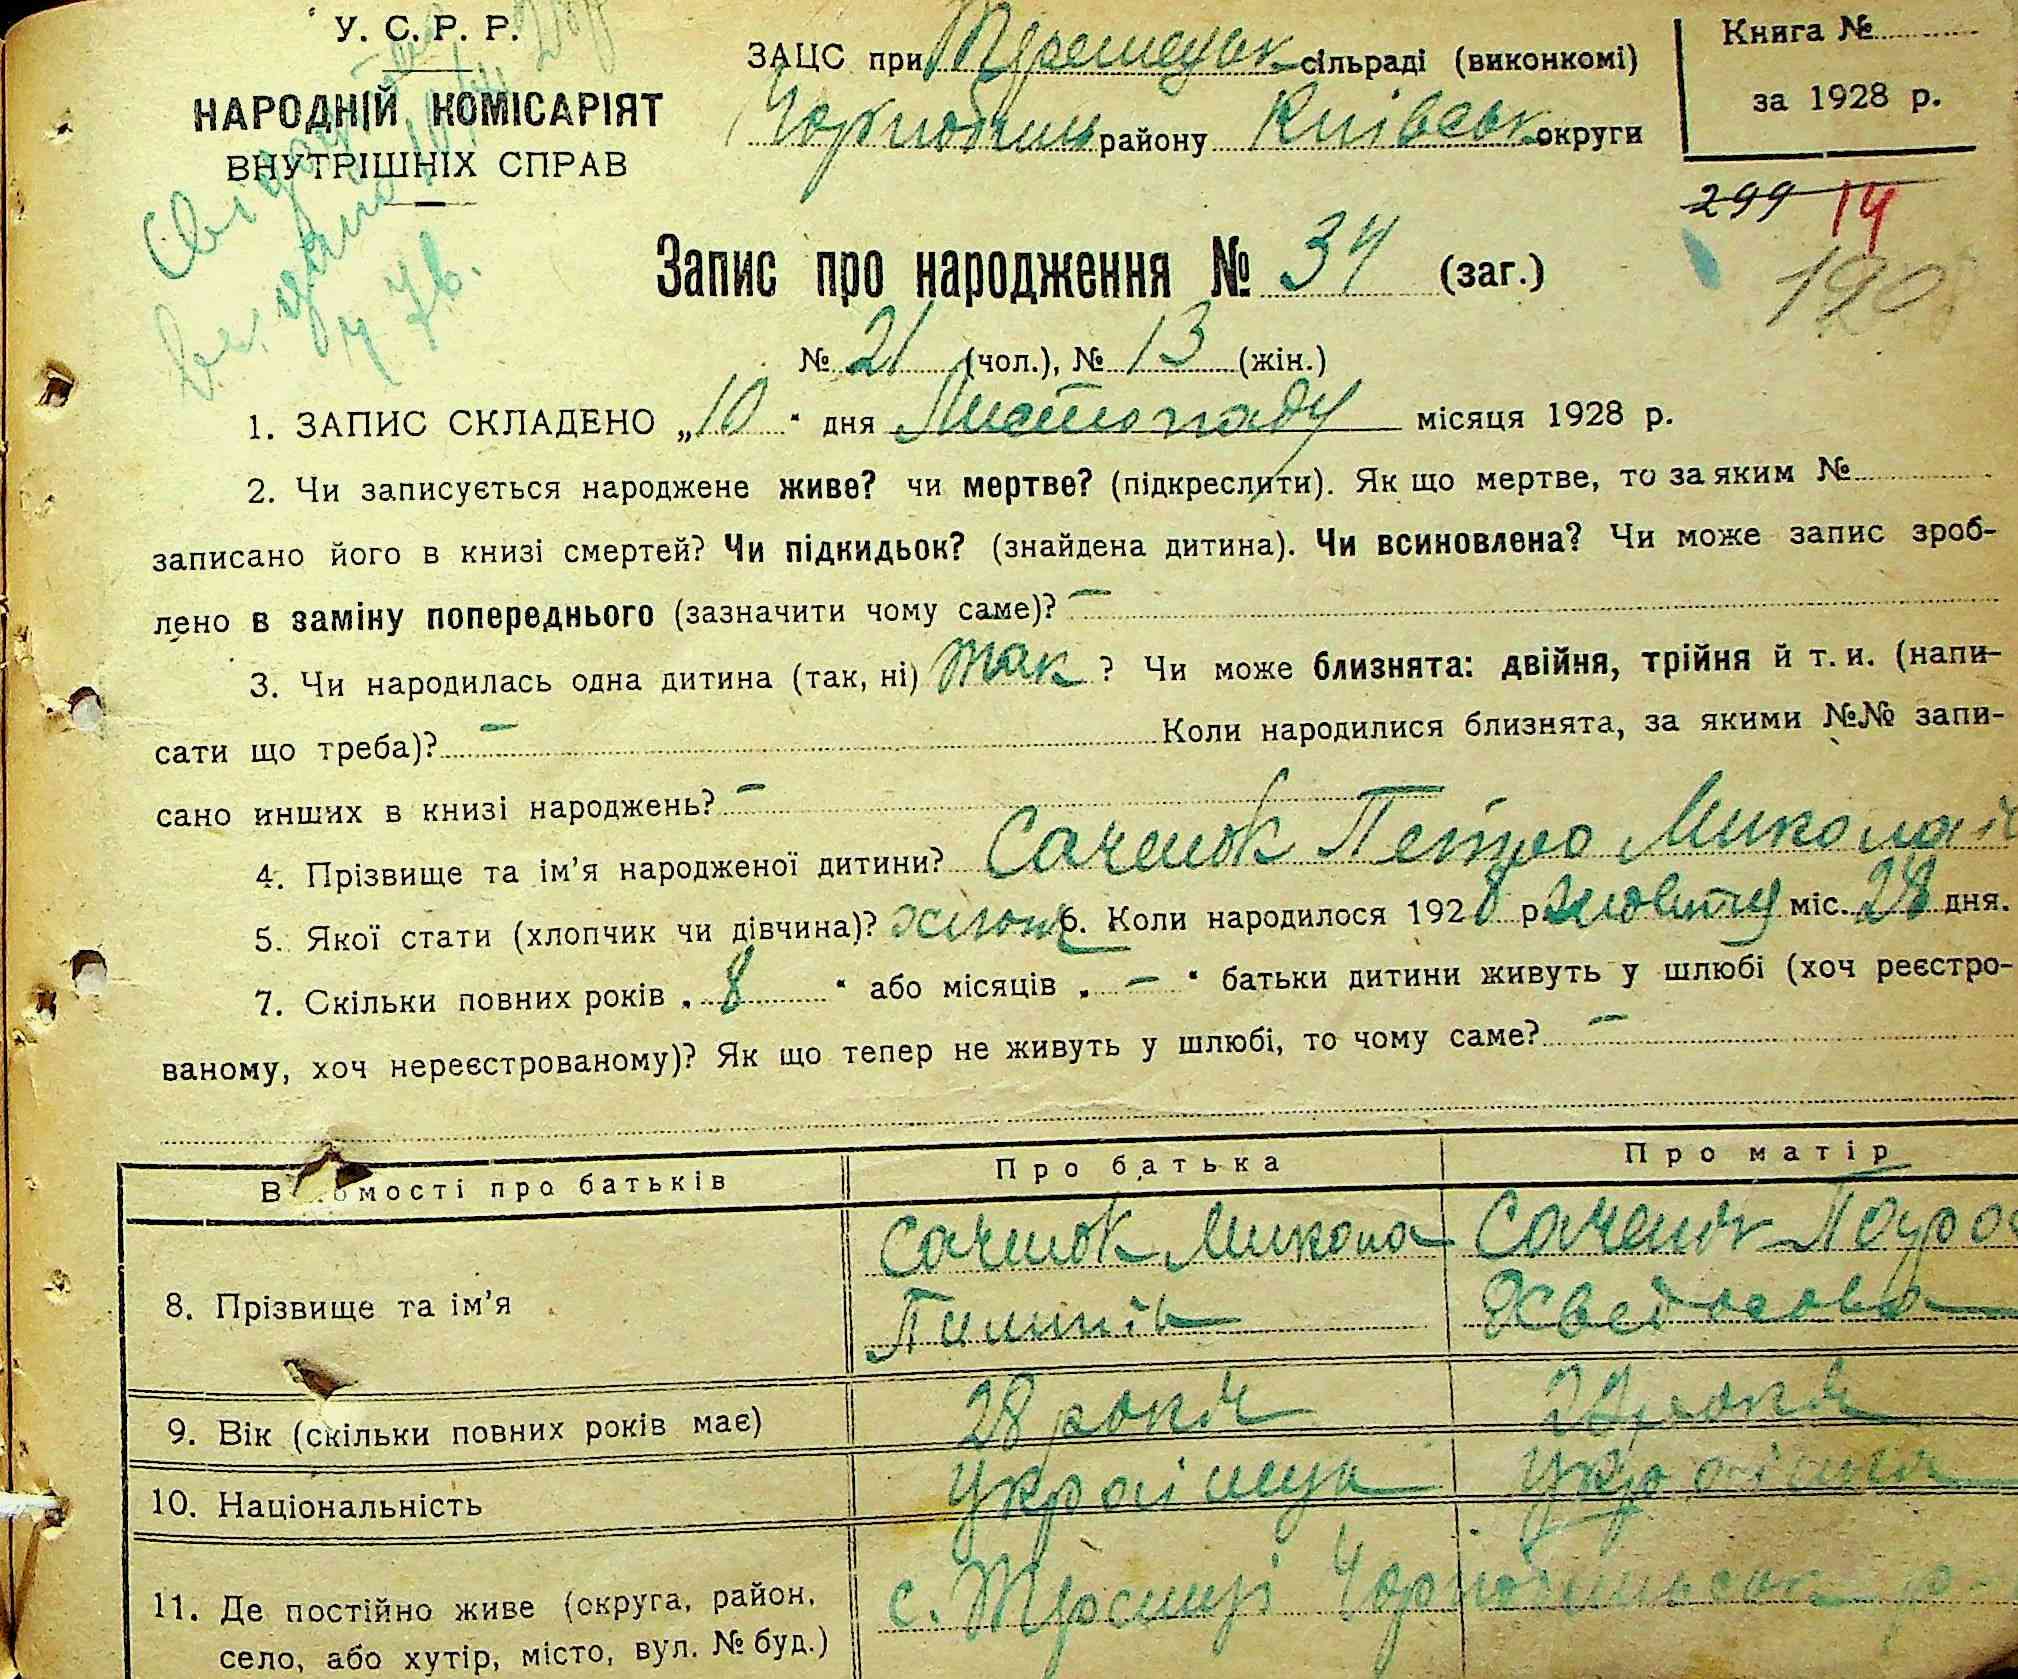 У. С. Р. Р.
НАРОДНІЙ КОМІСАРІЯТ
ВНУТРІШНІХ СПРАВ
ЗАЦС при сільраді (виконкомі)
Чорнобильськ району Київськ округи
Книга №
за 1928 р.
299 14
190
Запис про народження № 34 (заг.)
№ 21 (чол.), № 13 (жін.)
1. ЗАПИС СКЛАДЕНО „10" дня Листопаду місяця 1928 р.
2. Чи записується народжене живе? чи мертве? (підкреслити). Як що мертве, то за яким №
записано його в книзі смертей? Чи підкидьок? (знайдена дитина). Чи всиновлена? Чи може запис зроб-
лено в заміну попереднього (зазначити чому саме)? –
3. Чи народилась одна дитина (так, ні) так ? Чи може близнята: двійня, трійня й т. и. (напи-
сати що треба)? – Коли народилися близнята, за якими №№ запи-
сано инших в книзі народжень? –
4. Прізвище та ім'я народженої дитини? Саченок Петро Микола
5. Якої стати (хлопчик чи дівчина)? 6. Коли народилося 1928 р. Жовтня міс. 28 дня.
7. Скільки повних років „8" або місяців „–" батьки дитини живуть у шлюбі (хоч реєстро-
ваному, хоч нереєстрованому)? Як що тепер не живуть у шлюбі, то чому саме? –
Відомості про батьків Про батька Про матір
8. Прізвище та ім'я Саченок Микола Саченок
Пилипів
9. Вік (скільки повних років має) 28 років років
10. Національність Українець Українка
11. Де постійно живе (округа, район, с. Чорнобильськ р-
село, або хутір, місто, вул. № буд.)